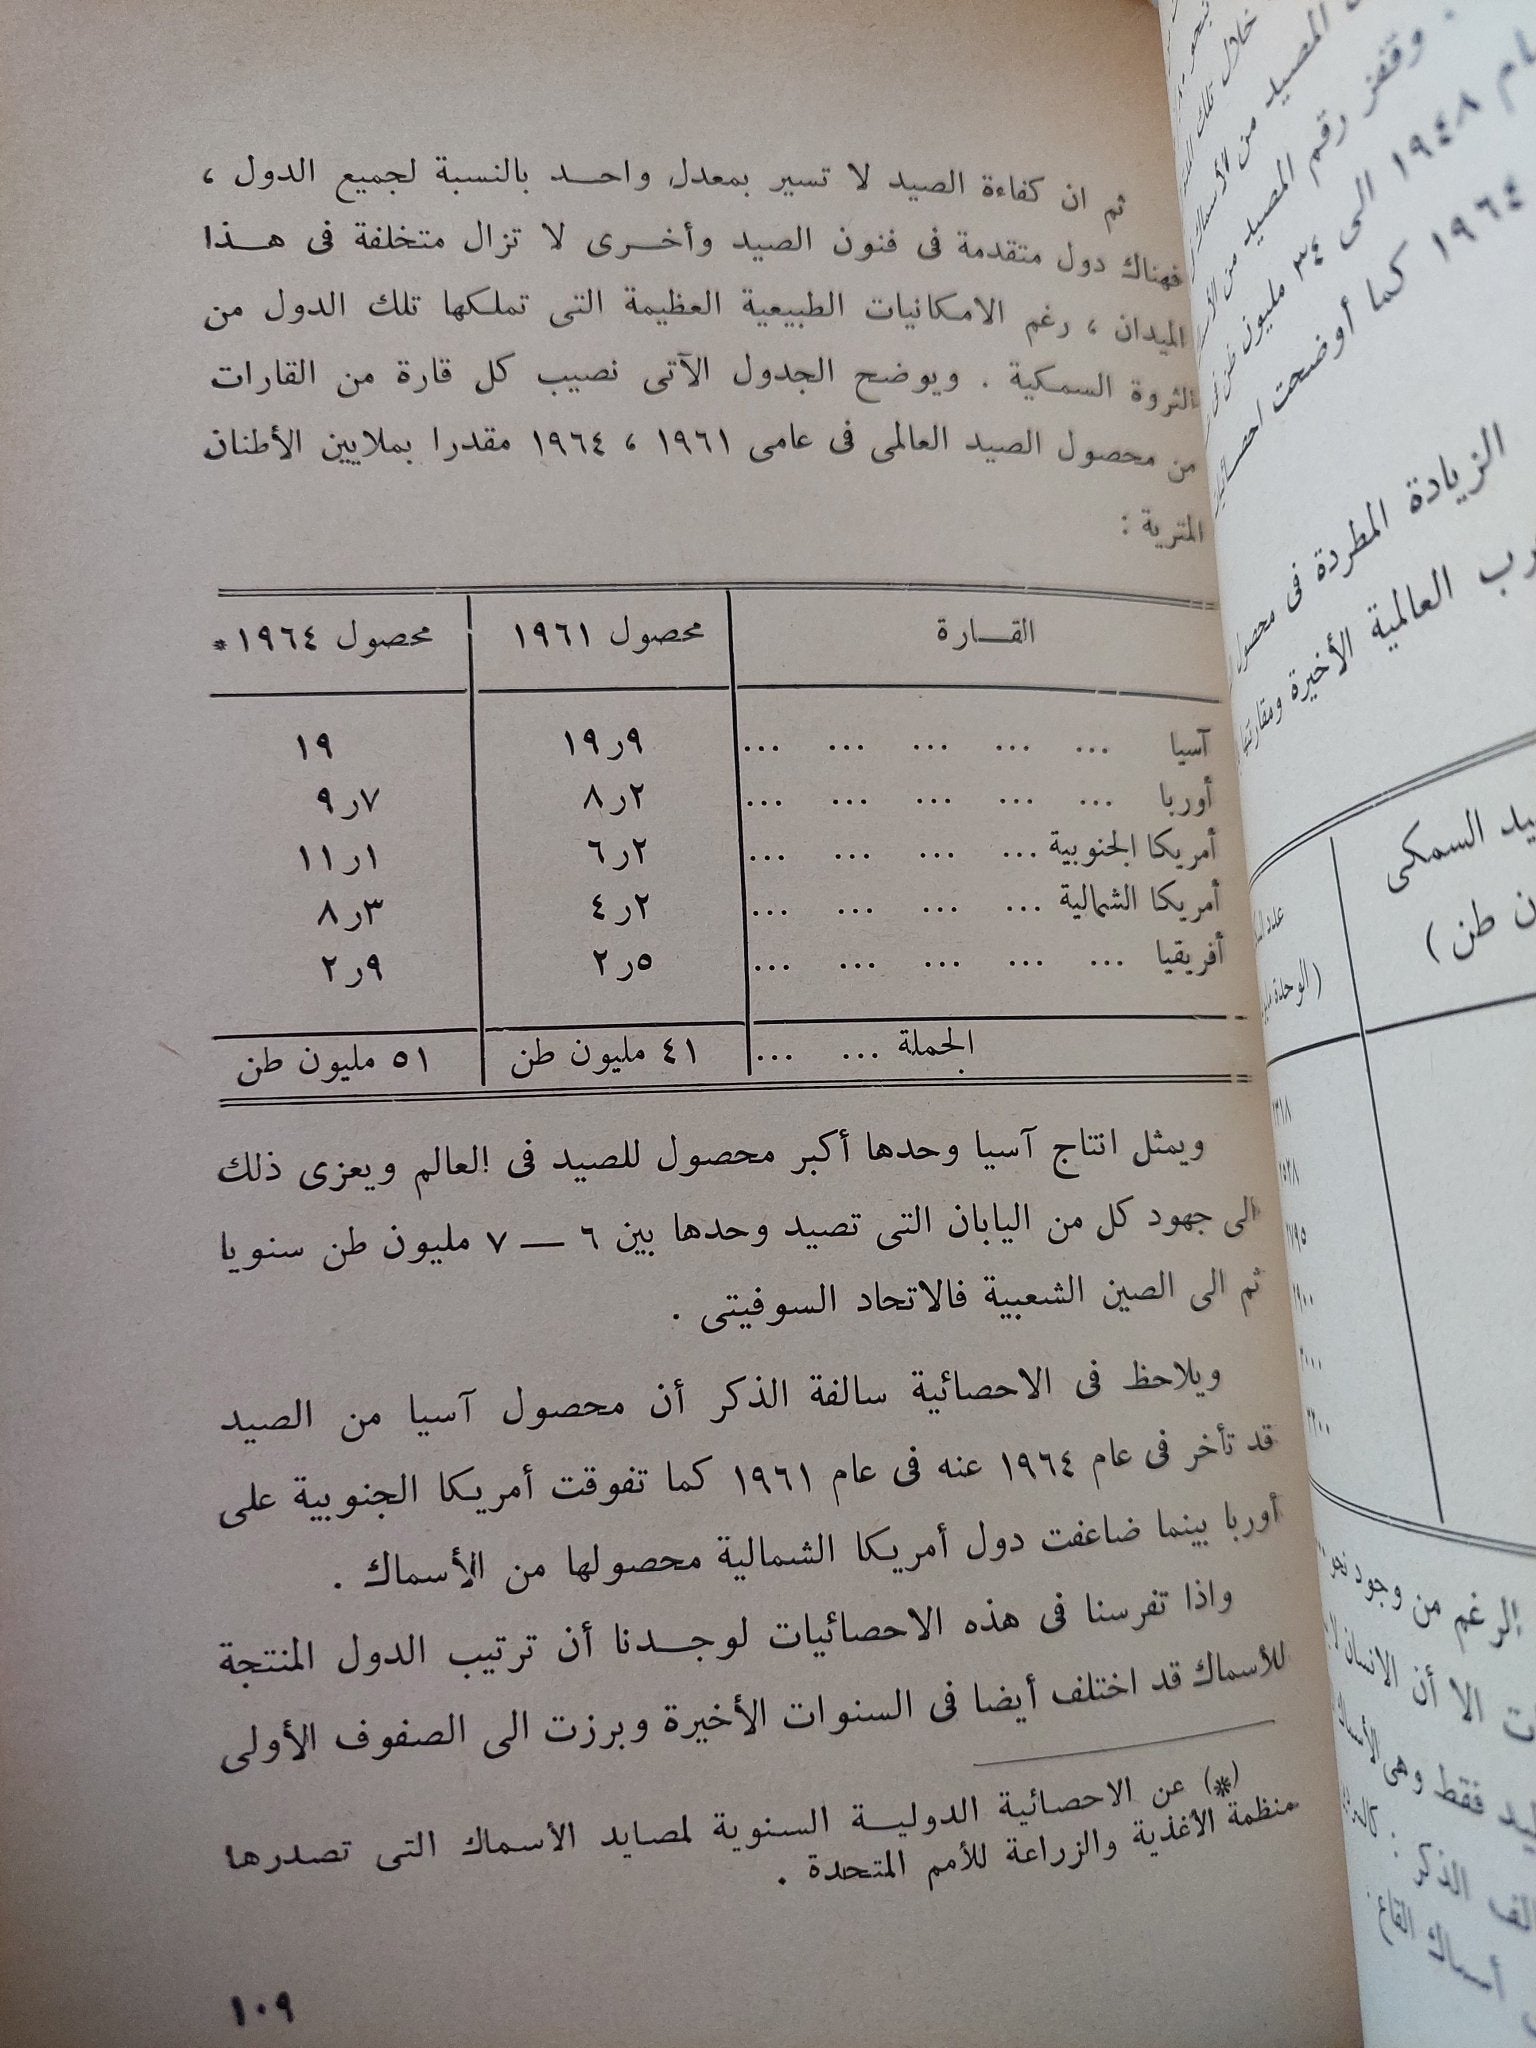 ثم ان كفاءة الصيد لا تسير بمعدل واحد بالنسبة لجميع الدول ،
فهناك دول متقدمة فى فنون الصيد وأخرى لا تزال متخلفة فى هذا
الميدان ، رغم الامكانيات الطبيعية العظيمة التى تملكها تلك الدول من
الثروة السمكية . ويوضح الجدول الآتى نصيب كل قارة من القارات
من محصول الصيد العالمى فى عامى ١٩٦١ ، ١٩٦٤ مقدرا بملايين الأطنان
المترية :
القارة محصول ١٩٦١ محصول ١٩٦٤*
آسيا ... ... ... ... ... ٩ر١٩ ١٩
أوربا ... ... ... ... ... ٢ر٨ ٧ر٩
أمريكا الجنوبية ... ... ... ... ٢ر٦ ١ر١١
أمريكا الشمالية ... ... ... ... ٢ر٤ ٣ر٨
أفريقيا ... ... ... ... ... ٥ر٢ ٩ر٢
الجملة ... ... ٤١ مليون طن ٥١ مليون طن
ويمثل انتاج آسيا وحدها أكبر محصول للصيد فى العالم ويعزى ذلك
الى جهود كل من اليابان التى تصيد وحدها بين ٦ — ٧ مليون طن سنويا
ثم الى الصين الشعبية فالاتحاد السوفيتى .
ويلاحظ فى الاحصائية سالفة الذكر أن محصول آسيا من الصيد
قد تأخر فى عام ١٩٦٤ عنه فى عام ١٩٦١ كما تفوقت أمريكا الجنوبية على
أوربا بينما ضاعفت دول أمريكا الشمالية محصولها من الأسماك .
واذا تفرسنا فى هذه الاحصائيات لوجدنا أن ترتيب الدول المنتجة
للأسماك قد اختلف أيضا فى السنوات الأخيرة وبرزت الى الصفوف الأولى
(*) عن الاحصائية الدولية السنوية لمصايد الأسماك التى تصدرها
منظمة الأغذية والزراعة للأمم المتحدة .
١٠٩
خلال تلك
المصيد من الأسماك
وقفز رقم المصيد من
١٩٤٨ الى ٣٤ مليون طن
١٩٦٤ كما أوضحت
الزيادة المطردة فى محصول
العالمية الأخيرة ومقارنتها
السمكى
طن )
عدد
( الوحدة
١٩٠٠
٢٠٠٠
٢٢٠٠
الرغم من وجود نحو
الا أن الانسان
فقط وهى
الذكر .